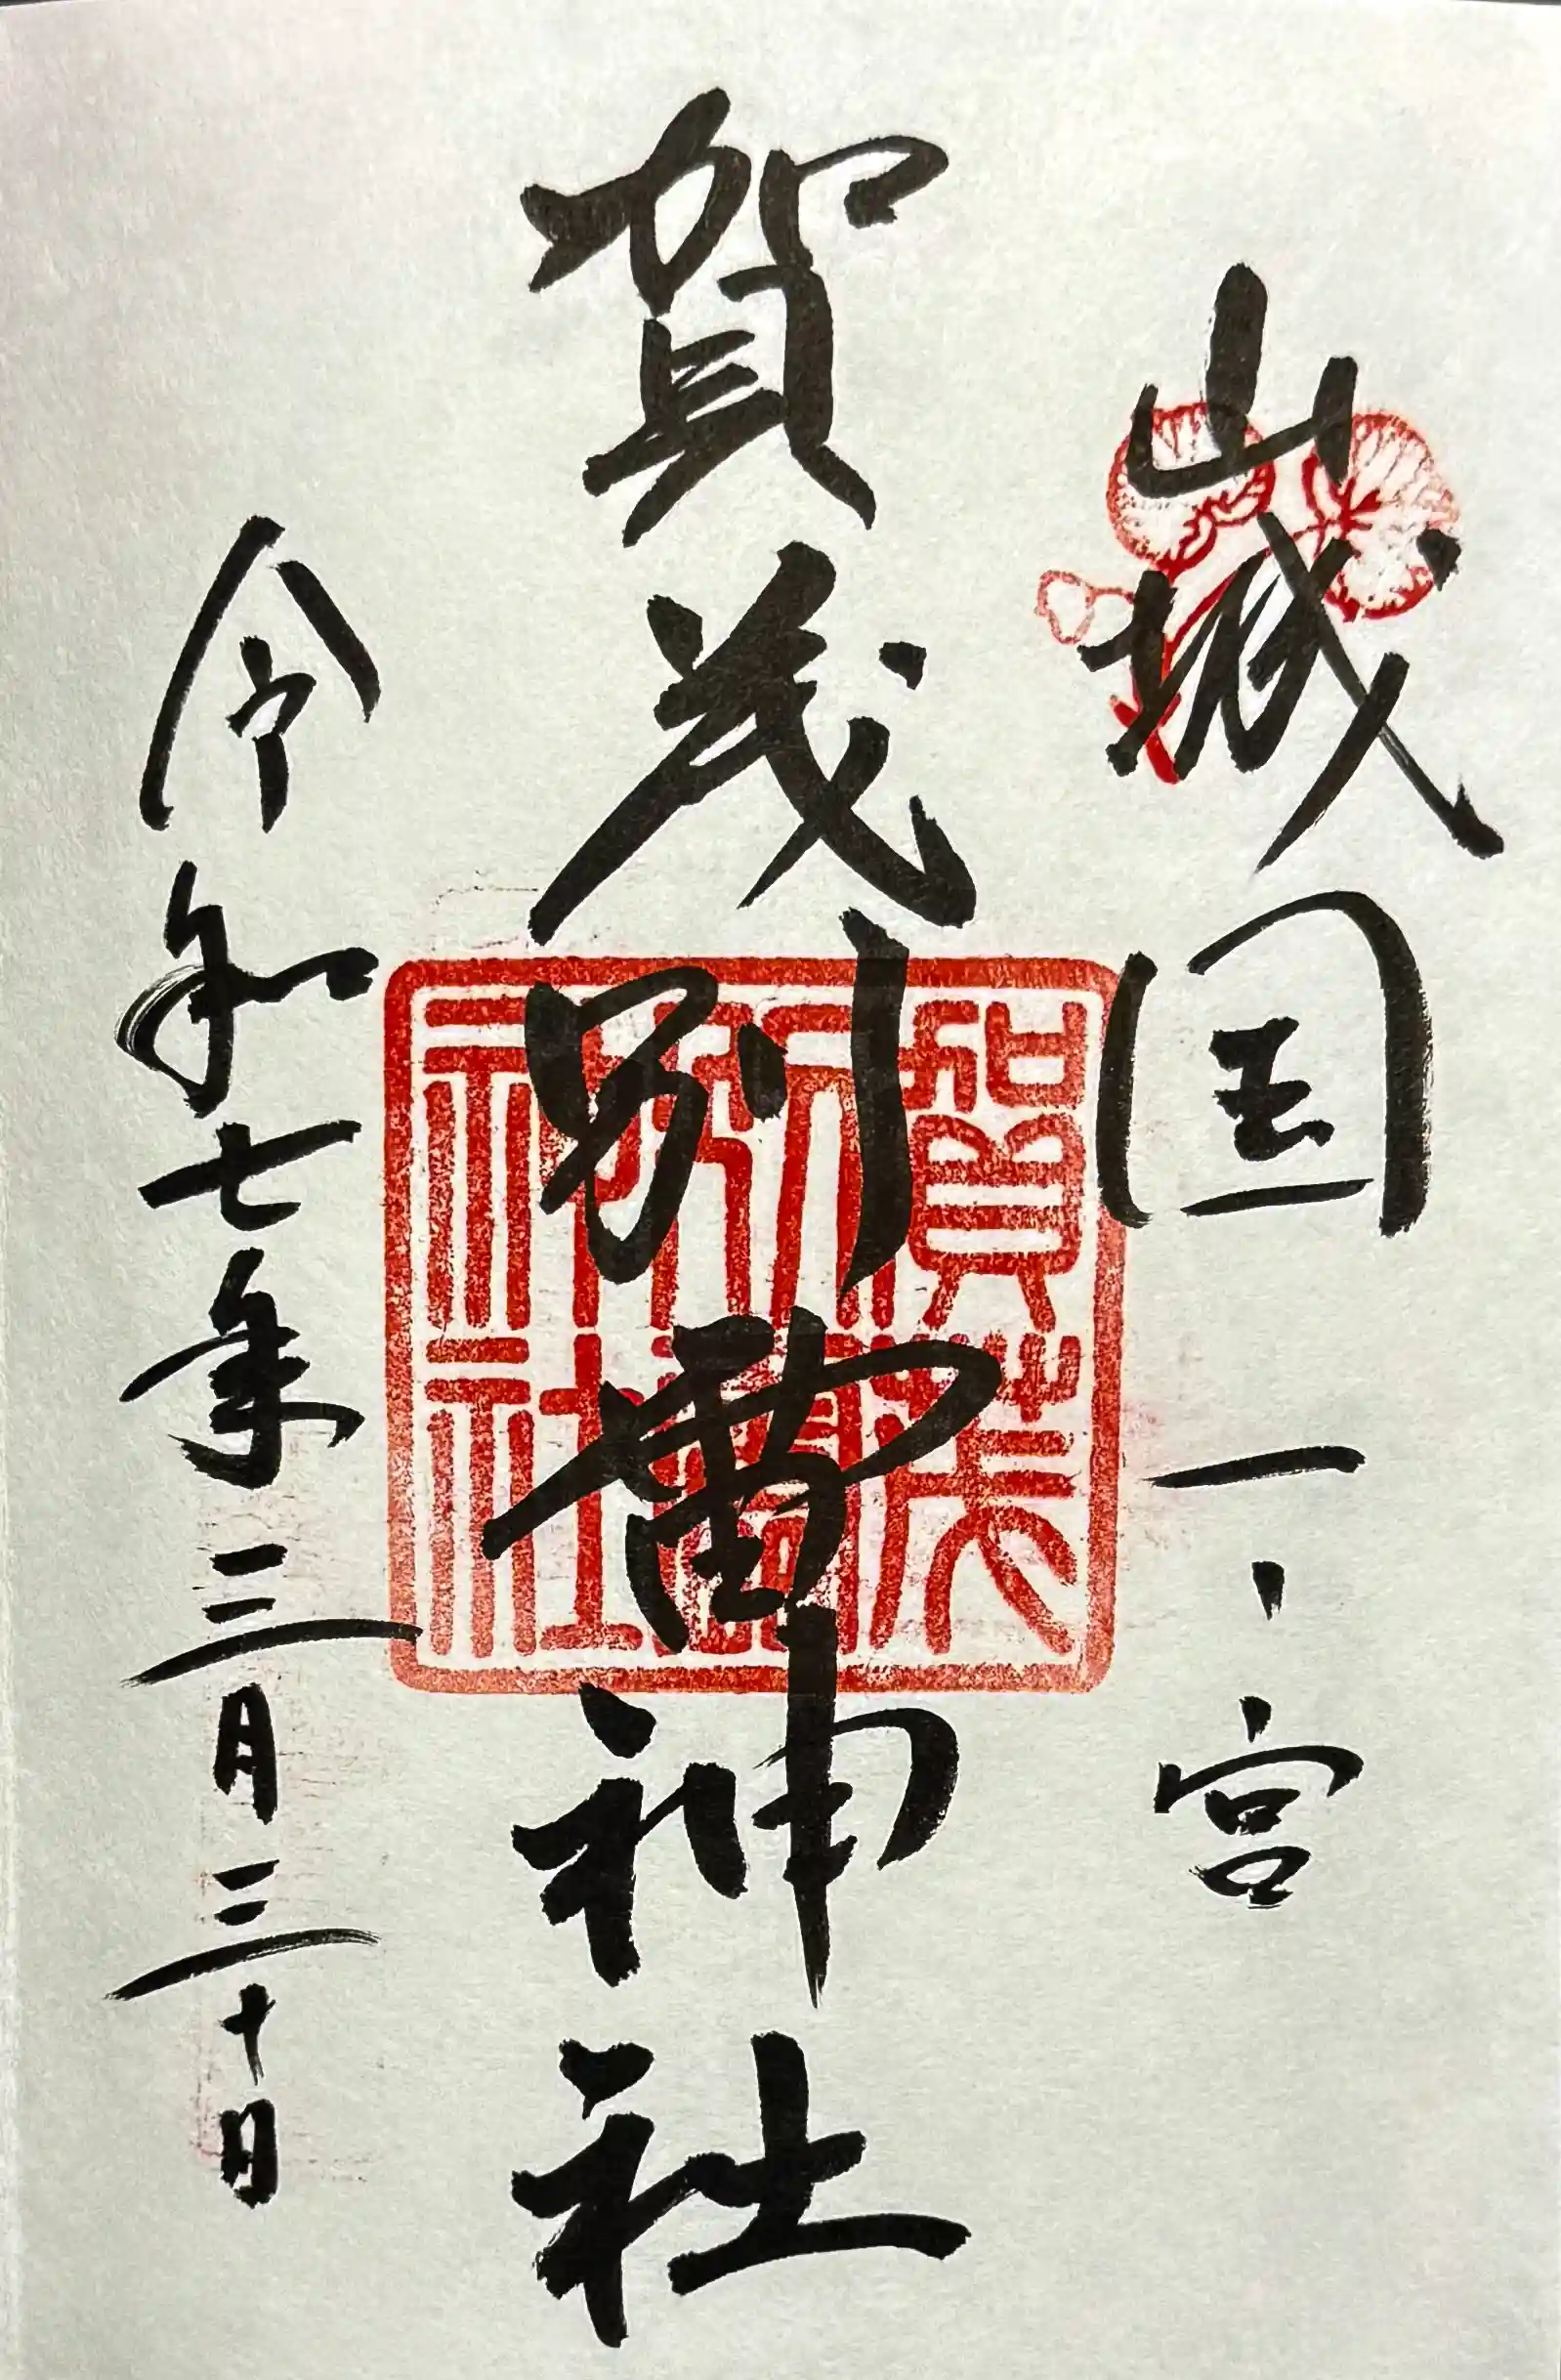 山城国一、宮
賀茂別雷神社
令和七年三月三十日
賀茂
別雷
神社